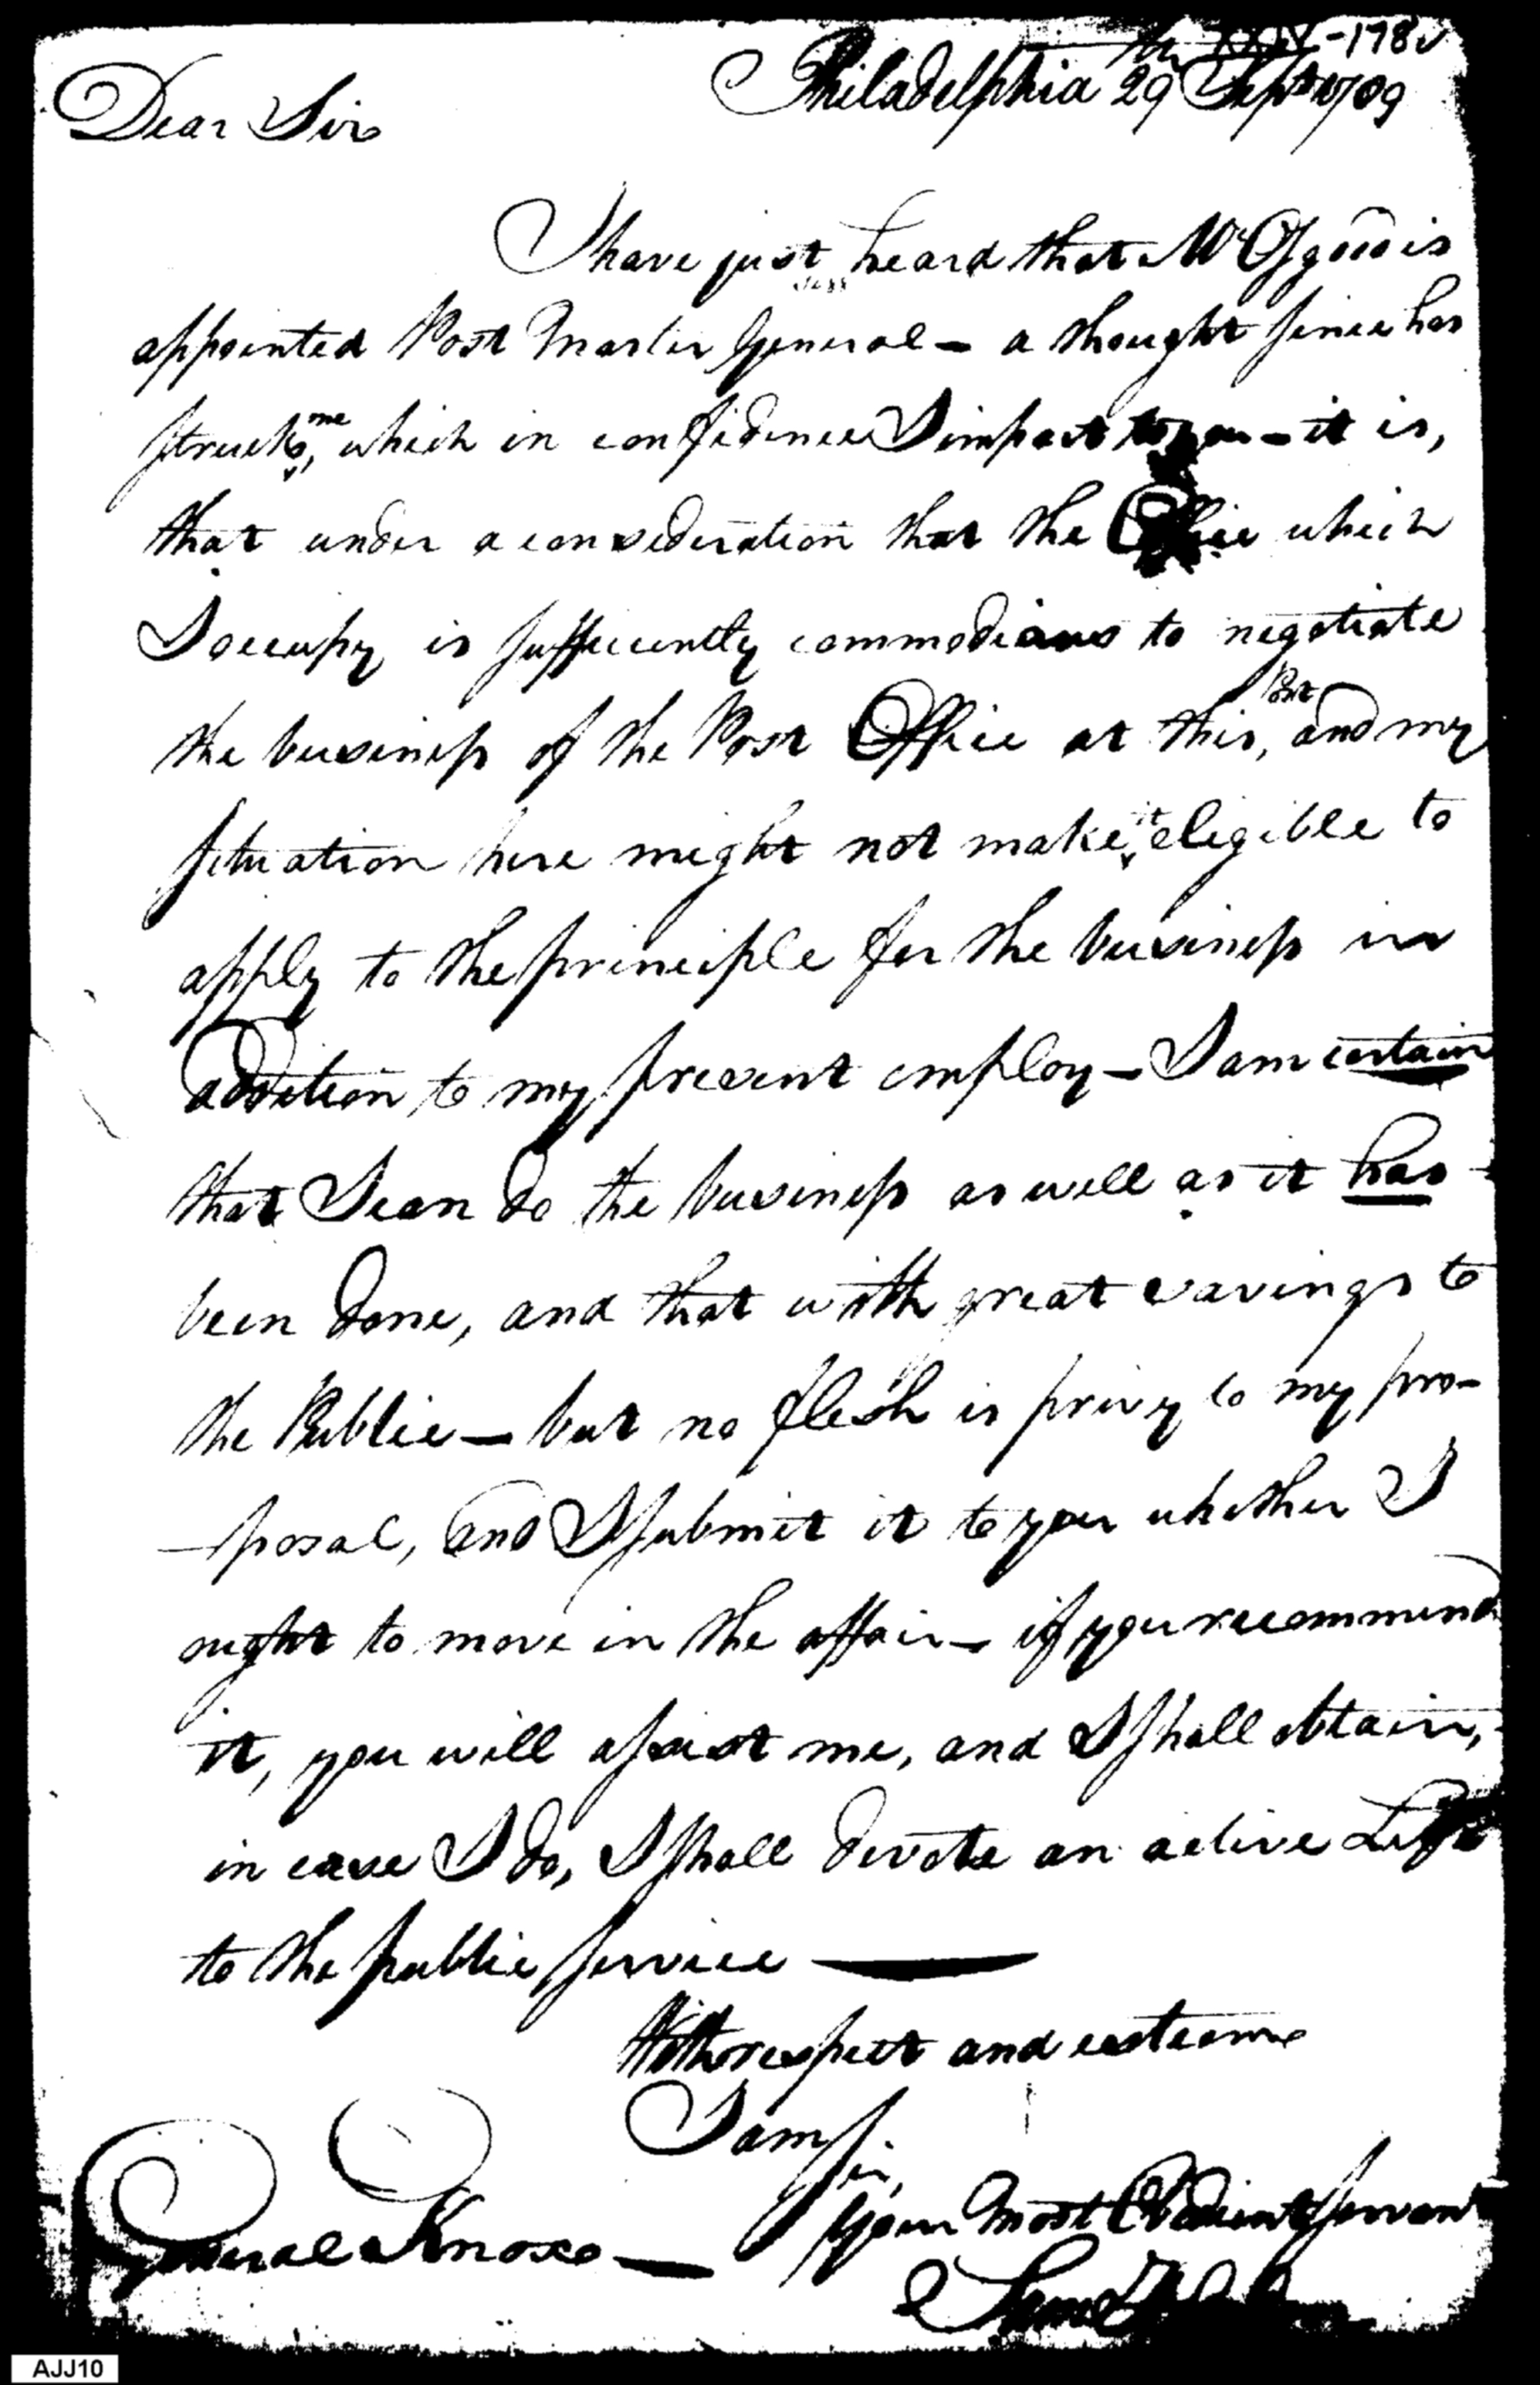 XXIV-178
Philadelphia 29 Sept 1789
Dear Sir
I have just heard that Mr Osgood is
appointed Post Master General – a thought since has
struck me, which in confidence I impart to you – it is,
that under a consideration that the Office which
I occupy is sufficiently commodious to negotiate
the business of the Post Office at this Port, and my
situation here might not make it eligible to
apply to the principle for the business in
addition to my present employ – I am certain
that I can do the business as well as it has
been done, and that with great savings to
the Public – but no flesh is privy to my pro-
-posal, and I submit it to you whether I
ought to move in the affair – if you recommend
it, you will assist me, and I shall obtain,
in case I do, I shall devote an active Life
to the public service —
With respect and esteem
I am Sir,
Your Most Obedient Servant
General Knox —
Saml
AJJ10